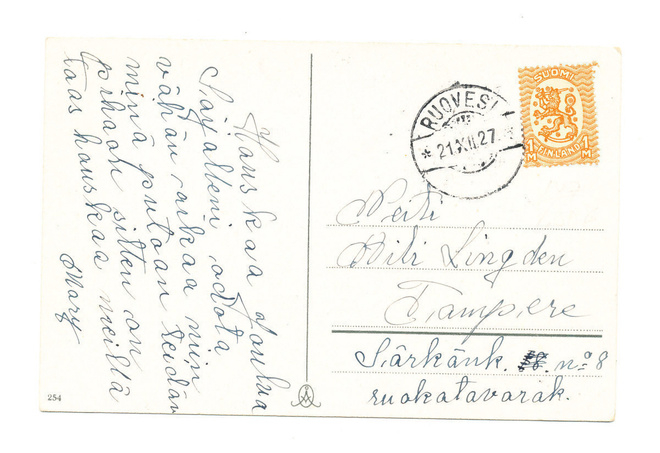 Hauskaa Joulua
Siivälleni, odota
vähän aikaa niin
minä putoan teidän
pihaan sitten on
taas hauskaa meillä
Mary
254
RUOVESI
21.XII.27.
SUOMI
FINLAND
1 M
1 M
Neiti
Lingden
Tampere
Särkänk. n:o 8
ruokatavarak.